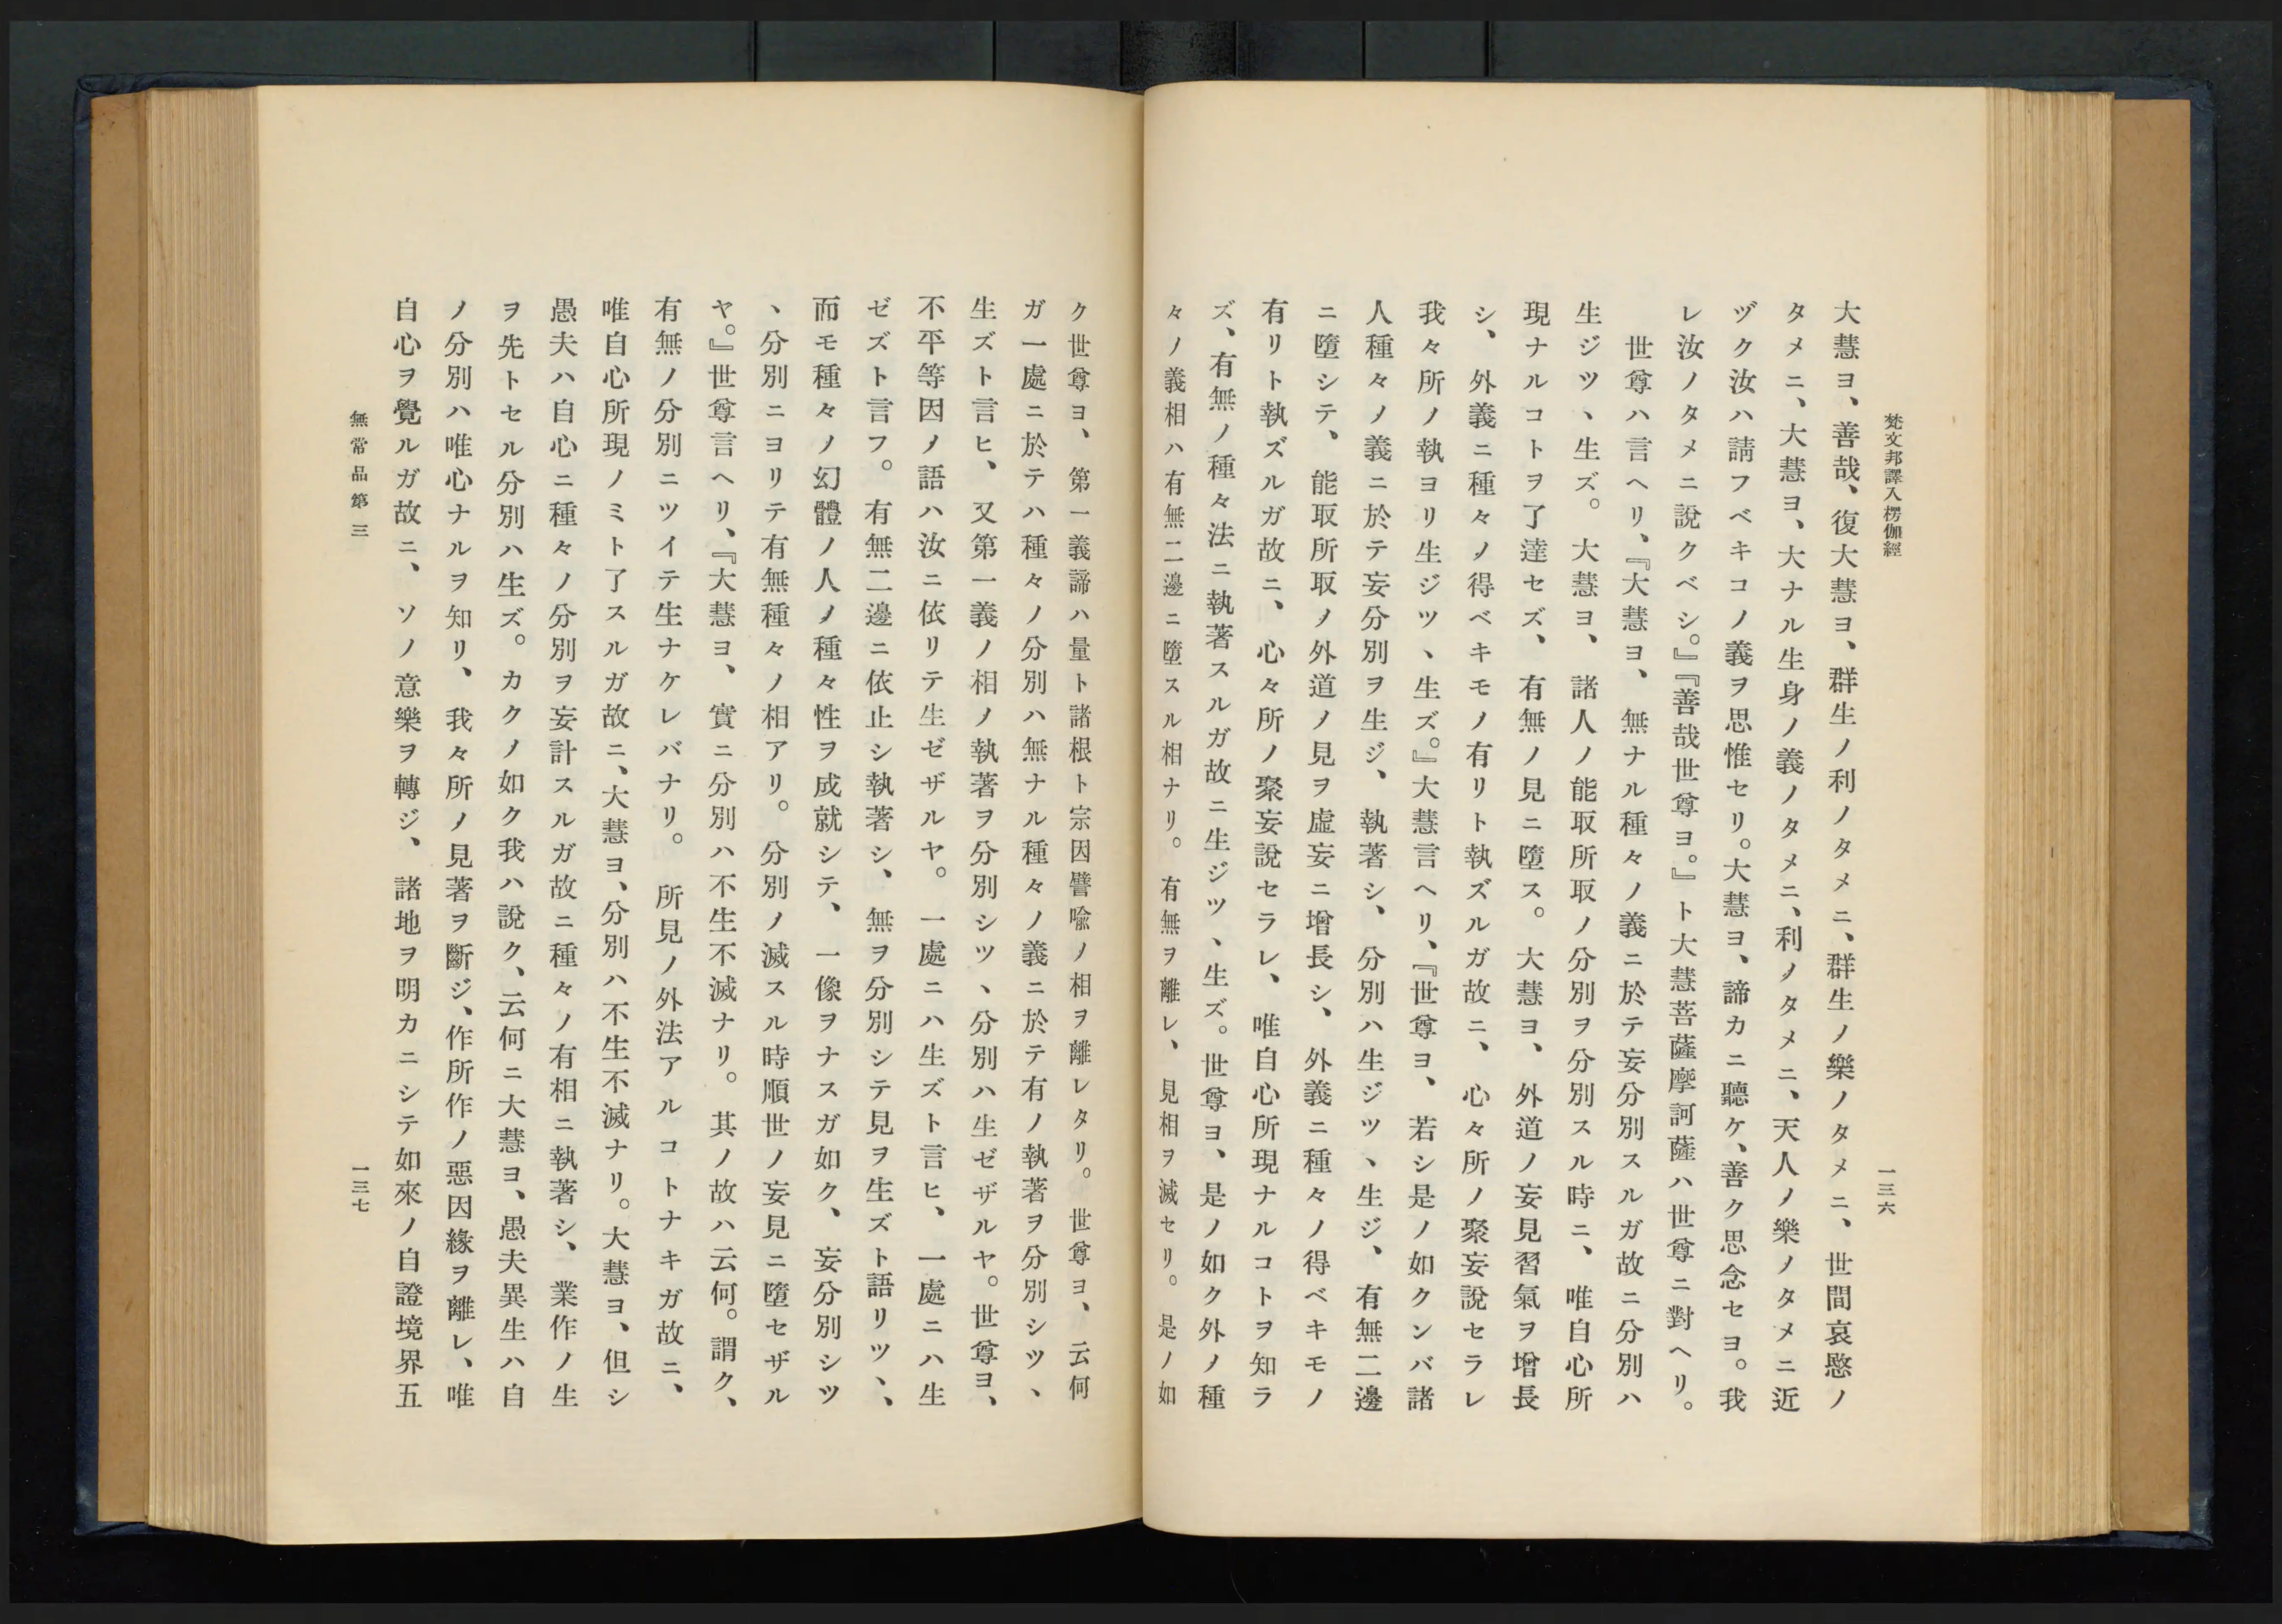 梵文邦譯入楞伽經
一三六
大慧ヨ、善哉、復大慧ヨ、群生ノ利ノタメニ、群生ノ樂ノタメニ、世間哀愍ノ
タメニ、大慧ヨ、大ナル生身ノ義ノタメニ、利ノタメニ、天人ノ樂ノタメニ近
ヅク汝ハ請フベキコノ義ヲ思惟セリ。大慧ヨ、諦カニ聽ケ、善ク思念セヨ。我
レ汝ノタメニ說クベシ。』『善哉世尊ヨ。』ト大慧菩薩摩訶薩ハ世尊ニ對ヘリ。
世尊ハ言ヘリ、『大慧ヨ、無ナル種々ノ義ニ於テ妄分別スルガ故ニ分別ハ
生ジツヽ生ズ。大慧ヨ、諸人ノ能取所取ノ分別ヲ分別スル時ニ、唯自心所
現ナルコトヲ了達セズ、有無ノ見ニ墮ス。大慧ヨ、外道ノ妄見習氣ヲ增長
シ、外義ニ種々ノ得ベキモノ有リト執ズルガ故ニ、心々所ノ聚妄說セラレ
我々所ノ執ヨリ生ジツヽ生ズ。』大慧言ヘリ、『世尊ヨ、若シ是ノ如クンバ諸
人種々ノ義ニ於テ妄分別ヲ生ジ、執著シ、分別ハ生ジツヽ生ジ、有無二邊
ニ墮シテ、能取所取ノ外道ノ見ヲ虛妄ニ增長シ、外義ニ種々ノ得ベキモノ
有リト執ズルガ故ニ、心々所ノ聚妄說セラレ、唯自心所現ナルコトヲ知ラ
ズ、有無ノ種々法ニ執著スルガ故ニ生ジツヽ生ズ。世尊ヨ、是ノ如ク外ノ種
々ノ義相ハ有無二邊ニ墮スル相ナリ。有無ヲ離レ、見相ヲ滅セリ。是ノ如
ク世尊ヨ、第一義諦ハ量ト諸根ト宗因譬喩ノ相ヲ離レタリ。世尊ヨ、云何
ガ一處ニ於テハ種々ノ分別ハ無ナル種々ノ義ニ於テ有ノ執著ヲ分別シツヽ
生ズト言ヒ、又第一義ノ相ノ執著ヲ分別シツヽ分別ハ生ゼザルヤ。世尊ヨ、
不平等因ノ語ハ汝ニ依リテ生ゼザルヤ。一處ニハ生ズト言ヒ、一處ニハ生
ゼズト言フ。有無二邊ニ依止シ執著シ、無ヲ分別シテ見ヲ生ズト語リツヽ、
而モ種々ノ幻體ノ人ノ種々性ヲ成就シテ、一像ヲナスガ如ク、妄分別シツ
ヽ分別ニヨリテ有無種々ノ相アリ。分別ノ滅スル時順世ノ妄見ニ墮セザル
ヤ。』世尊言ヘリ、『大慧ヨ、實ニ分別ハ不生不滅ナリ。其ノ故ハ云何。謂ク、
有無ノ分別ニツイテ生ナケレバナリ。所見ノ外法アルコトナキガ故ニ、
唯自心所現ノミト了スルガ故ニ、大慧ヨ、分別ハ不生不滅ナリ。大慧ヨ、但シ
愚夫ハ自心ニ種々ノ分別ヲ妄計スルガ故ニ種々ノ有相ニ執著シ、業作ノ生
ヲ先トセル分別ハ生ズ。カクノ如ク我ハ說ク、云何ニ大慧ヨ、愚夫異生ハ自
ノ分別ハ唯心ナルヲ知リ、我々所ノ見著ヲ斷ジ、作所作ノ惡因緣ヲ離レ、唯
自心ヲ覺ルガ故ニ、ソノ意樂ヲ轉ジ、諸地ヲ明カニシテ如來ノ自證境界五
無常品第三
一三七